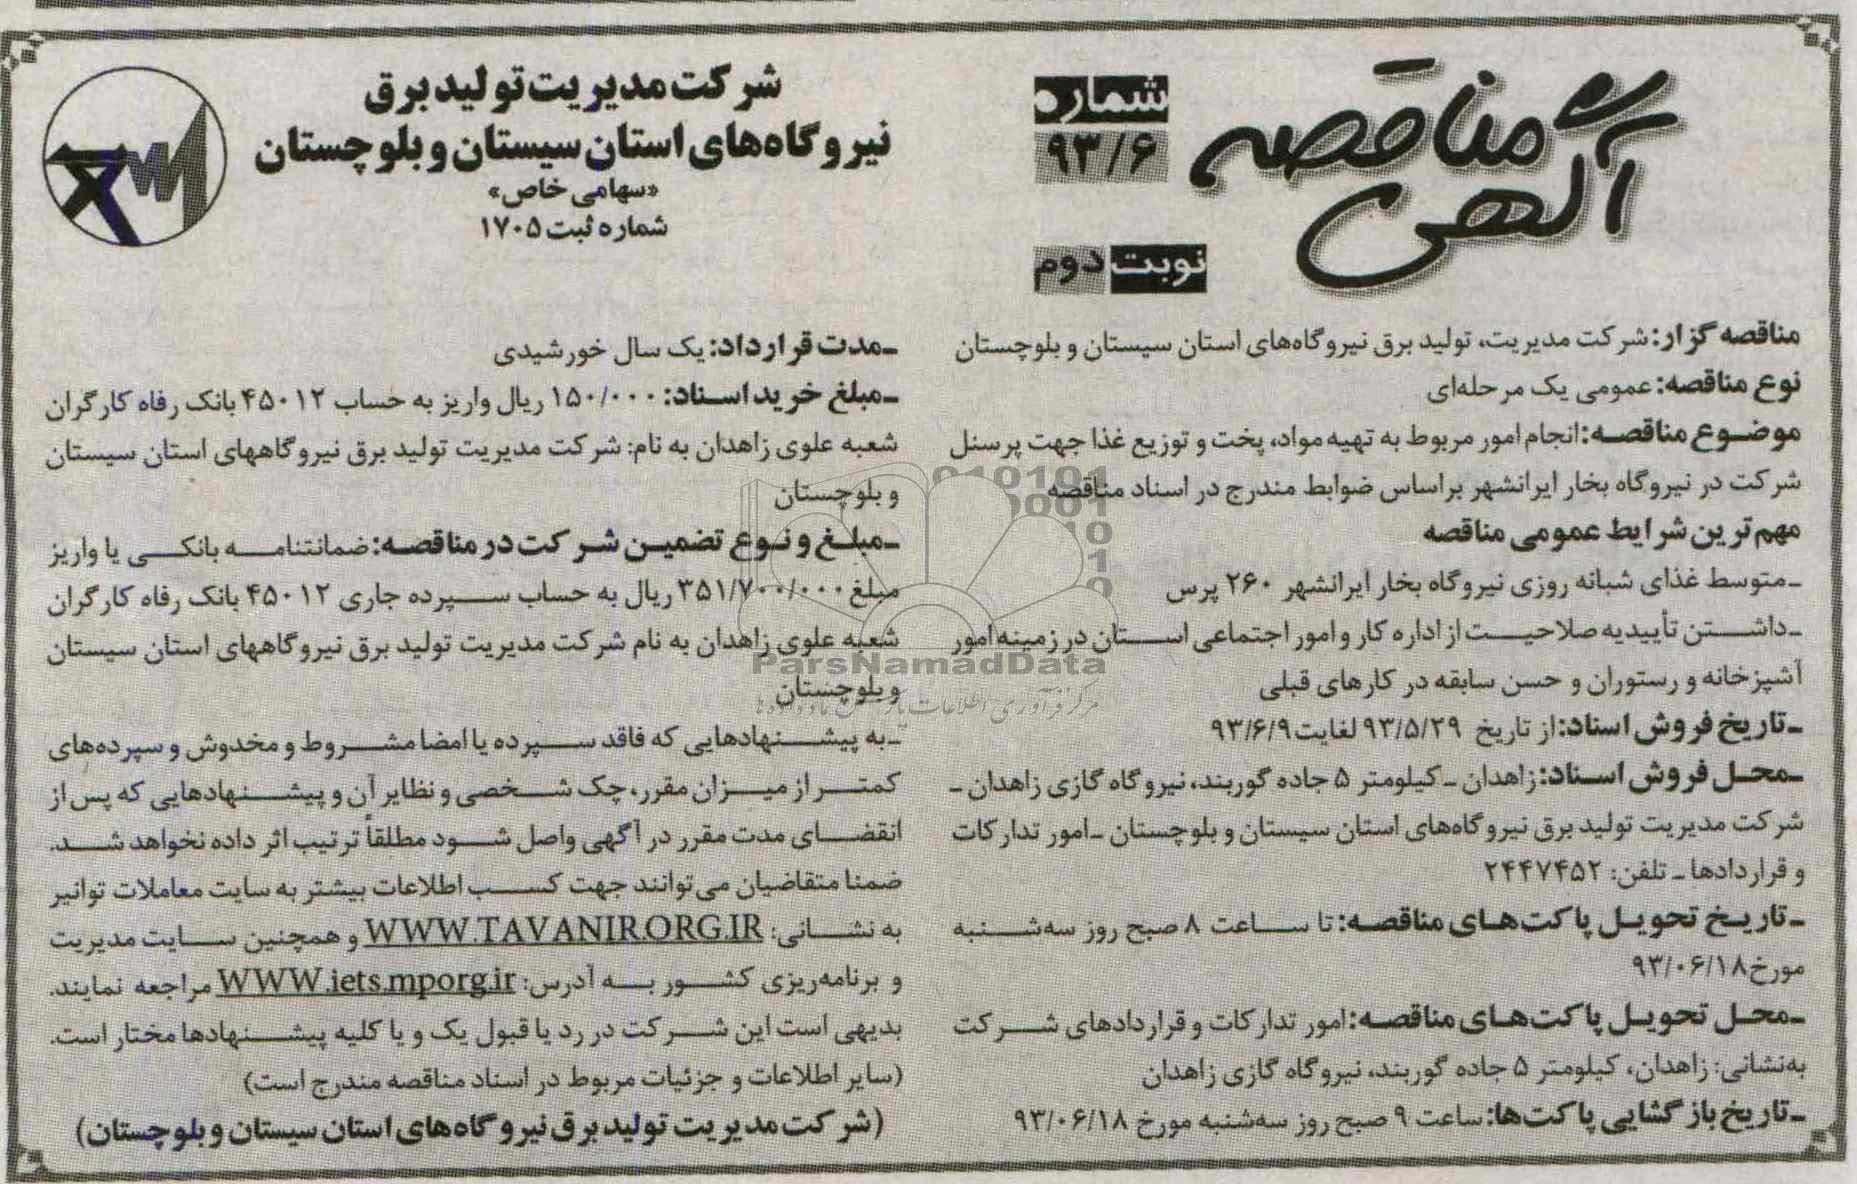 آگهی مناقصه
شماره
۹۳/۶
نوبت دوم
شرکت مدیریت تولید برق
نیروگاه‌های استان سیستان و بلوچستان
«سهامی خاص»
شماره ثبت ۱۷۰۵
مناقصه گزار: شرکت مدیریت، تولید برق نیروگاه‌های استان سیستان و بلوچستان
نوع مناقصه: عمومی یک مرحله‌ای
موضوع مناقصه: انجام امور مربوط به تهیه مواد، پخت و توزیع غذا جهت پرسنل
شرکت در نیروگاه بخار ایرانشهر براساس ضوابط مندرج در اسناد مناقصه
مهم ترین شرایط عمومی مناقصه
ـ متوسط غذای شبانه روزی نیروگاه بخار ایرانشهر ۲۶۰ پرس
ـ داشتن تأییدیه صلاحیت از اداره کار و امور اجتماعی استان در زمینه امور
آشپزخانه و رستوران و حسن سابقه در کارهای قبلی
ـ تاریخ فروش اسناد: از تاریخ ۹۳/۵/۲۹ لغایت ۹۳/۶/۹
ـ محل فروش اسناد: زاهدان ـ کیلومتر ۵ جاده گوربند، نیروگاه گازی زاهدان ـ
شرکت مدیریت تولید برق نیروگاه‌های استان سیستان و بلوچستان ـ امور تدارکات
و قراردادها ـ تلفن: ۲۴۴۷۴۵۲
ـ تاریخ تحویل پاکت‌های مناقصه: تا ساعت ۸ صبح روز سه‌شنبه
مورخ ۹۳/۰۶/۱۸
ـ محل تحویل پاکت‌های مناقصه: امور تدارکات و قراردادهای شرکت
به‌نشانی: زاهدان، کیلومتر ۵ جاده گوربند، نیروگاه گازی زاهدان
ـ تاریخ بازگشایی پاکت‌ها: ساعت ۹ صبح روز سه‌شنبه مورخ ۹۳/۰۶/۱۸
ـ مدت قرارداد: یک سال خورشیدی
ـ مبلغ خرید اسناد: ۱۵۰/۰۰۰ ریال واریز به حساب ۴۵۰۱۲ بانک رفاه کارگران
شعبه علوی زاهدان به نام: شرکت مدیریت تولید برق نیروگاههای استان سیستان
و بلوچستان
ـ مبلغ و نوع تضمین شرکت در مناقصه: ضمانتنامه بانکی یا واریز
مبلغ ۳۵۱/۷۰۰/۰۰۰ ریال به حساب سپرده جاری ۴۵۰۱۲ بانک رفاه کارگران
شعبه علوی زاهدان به نام شرکت مدیریت تولید برق نیروگاههای استان سیستان
و بلوچستان
ـ به پیشنهادهایی که فاقد سپرده یا امضا مشروط و مخدوش و سپرده‌های
کمتر از میزان مقرر، چک شخصی و نظایر آن و پیشنهادهایی که پس از
انقضای مدت مقرر در آگهی واصل شود مطلقاً ترتیب اثر داده نخواهد شد.
ضمنا متقاضیان می‌توانند جهت کسب اطلاعات بیشتر به سایت معاملات توانیر
به نشانی: WWW.TAVANIR.ORG.IR و همچنین سایت مدیریت
و برنامه‌ریزی کشور به آدرس: WWW.iets.mporg.ir مراجعه نمایند.
بدیهی است این شرکت در رد یا قبول یک و یا کلیه پیشنهادها مختار است.
(سایر اطلاعات و جزئیات مربوط در اسناد مناقصه مندرج است)
(شرکت مدیریت تولید برق نیروگاه‌های استان سیستان و بلوچستان)
ParsNamadData